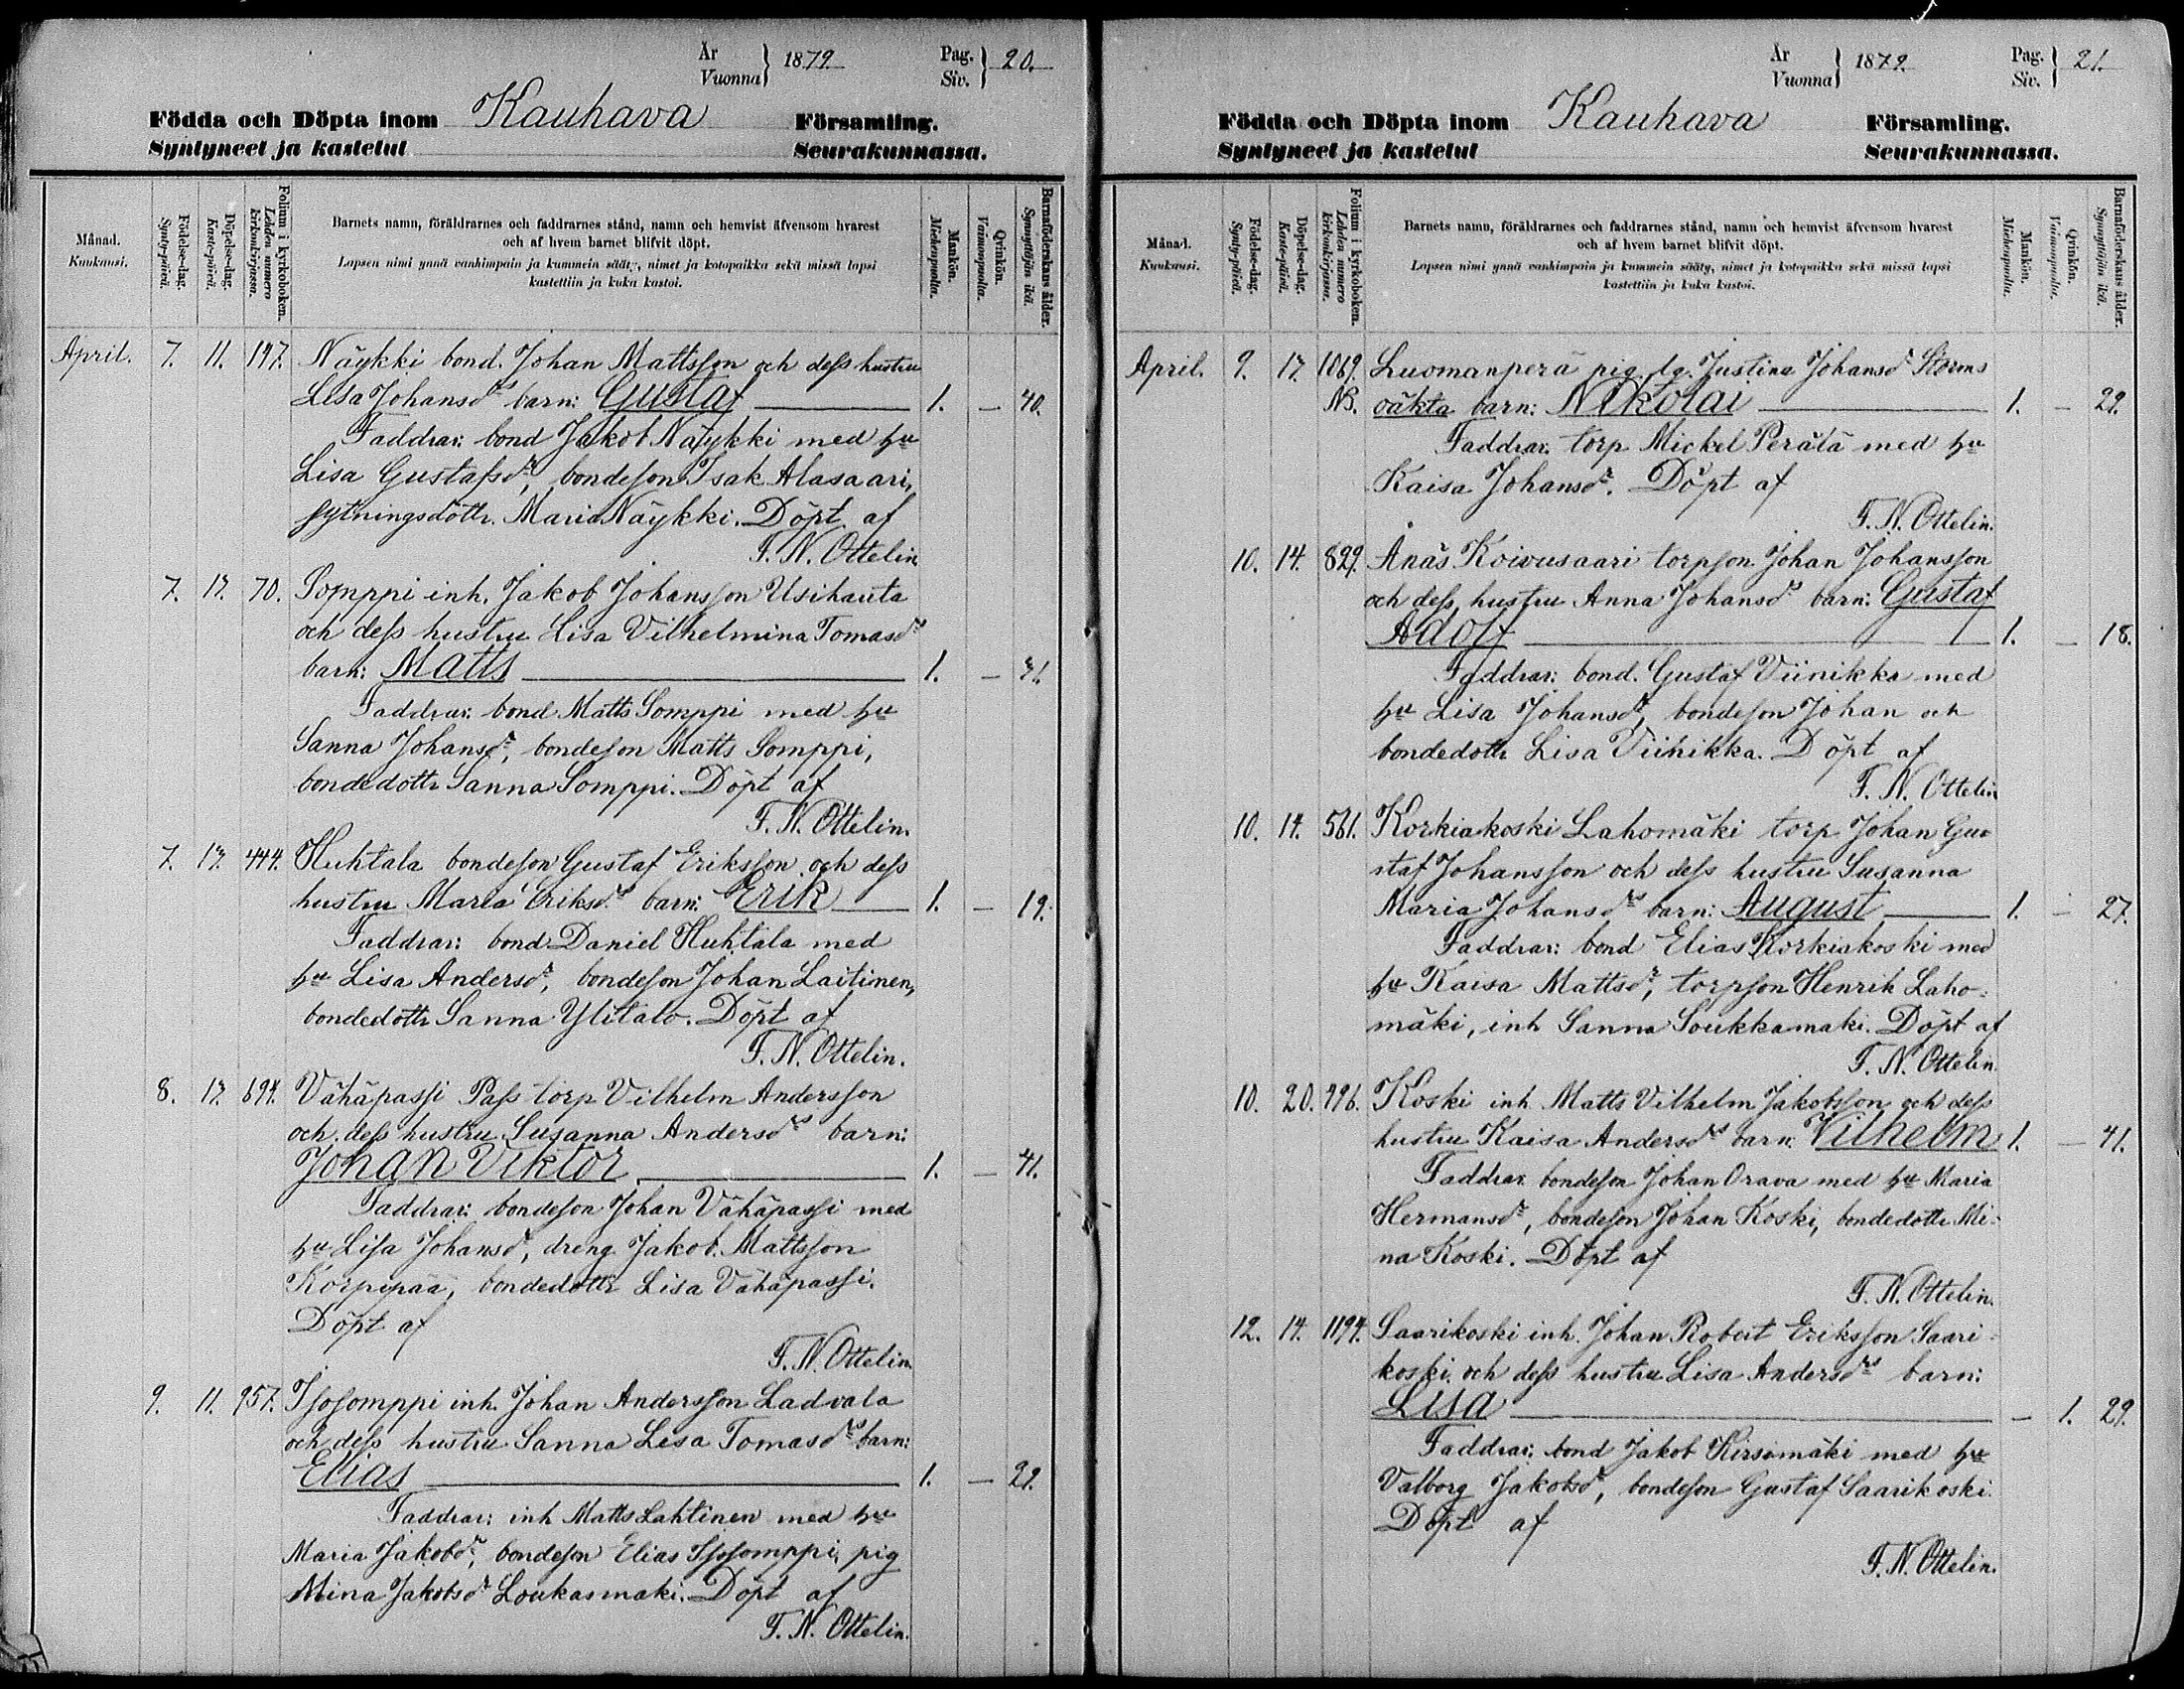 År
Vuonna } 1879. Pag.
Siv. } 20.
Födda och Döpta inom Kauhava Församling.
Syntyneet ja kastetut Seurakunnassa.
Månad.
Kuukausi.
Födelse-dag.
Synty-päivä.
Döpelse-dag.
Kaste-päivä.
Folium i kyrkoboken.
Lehden numero
kirkonkirjassa.
Barnets namn, föräldrarnes och faddrarnes stånd, namn och hemvist äfvensom hvarest
och af hvem barnet blifvit döpt.
Lapsen nimi ynnä vanhimpain ja kummein sääty, nimet ja kotopaikka sekä missä lapsi
kastettiin ja kuka kastoi.
Mankön.
Miehenpuolta.
Qvinkön.
Vaimonpuolta.
Barnaföderskans ålder.
Synnyttäjän ikä.
April. 7. 11. 197. Näykki bond. Johan Mattsson och dess hustru
Lisa Johansdrs barn: Gustaf 1. — 40.
Faddrar: bond Jakob Näykki med hu
Lisa Gustafsdr, bondeson Isak Alasaari,
sytningsdottr. Maria Näykki. Döpt af
F. N. Ottelin
7. 13. 70. Somppi inh. Jakob Johansson Usihauta
och dess hustru Lisa Vilhelmina Tomasdrs
barn: Matts 1. — 31.
Faddrar: bond Matts Somppi med hu
Sanna Johansdr, bondeson Matts Somppi,
bondedottr Sanna Somppi. Döpt af
F. N. Ottelin.
7. 13. 444. Huhtala bondeson Gustaf Eriksson och dess
hustru Maria Eriksdrs barn: Erik 1. — 19.
Faddrar: bond Daniel Huhtala med
hu Lisa Andersdr, bondeson Johan Laitinen,
bondedottr Sanna Ylitalo. Döpt af
F. N. Ottelin.
8. 13. 694. Vähäpassi Pass torp Vilhelm Andersson
och dess hustru Susanna Andersdrs barn:
Johan Viktor 1. — 41.
Faddrar: bondeson Johan Vähäpassi med
hu Lisa Johansdr, dreng Jakob Mattsson
Korpipää, bondedottr Lisa Vähäpassi.
Döpt af
F. N. Ottelin
9. 11. 957. Isosomppi inh. Johan Andersson Ladvala
och dess hustru Sanna Lesa Tomasdrs barn:
Elias 1. — 29.
Faddrar: inh Matts Lahtinen med hu
Maria Jakobdr, bondeson Elias Isosomppi, pig
Mina Jakobsdr Loukasmaki. Döpt af
F. N. Ottelin.
År
Vuonna } 1879. Pag.
Siv. } 21.
Födda och Döpta inom Kauhava Församling.
Syntyneet ja kastetut Seurakunnassa.
Månad.
Kuukausi.
Födelse-dag.
Synty-päivä.
Döpelse-dag.
Kaste-päivä.
Folium i kyrkoboken.
Lehden numero
kirkonkirjassa.
Barnets namn, föräldrarnes och faddrarnes stånd, namn och hemvist äfvensom hvarest
och af hvem barnet blifvit döpt.
Lapsen nimi ynnä vanhimpain ja kummein sääty, nimet ja kotopaikka sekä missä lapsi
kastettiin ja kuka kastoi.
Mankön.
Miehenpuolta.
Qvinkön.
Vaimonpuolta.
Barnaföderskans ålder.
Synnyttäjän ikä.
April. 9. 17. 1069. Luomanperä pig. lg. Justina Johansdr Storms
NB. oäkta barn: Nikolai 1. — 29.
Faddrar: torp Mickel Perälä med hu
Kaisa Johansdr. Döpt af
F. N. Ottelin.
10. 14. 829. Ånäs Koivusaari torpson Johan Johansson
och dess hustru Anna Johansdrs barn: Gustaf
Adolf 1. — 18.
Faddrar: bond. Gustaf Viinikka med
hu Lisa Johansdr, bondeson Johan och
bondedottr Lisa Viinikka. Döpt af
F. N. Ottelin
10. 14. 561. Korkiakoski Lahomäki torp Johan Gu=
staf Johansson och dess hustru Susanna
Maria Johansdrs barn: August 1. — 27.
Faddrar: bond Elias Korkiakoski med
hu Kaisa Mattsdr, torpson Henrik Laho=
mäki, inh Sanna Soukkamaki. Döpt af
F. N. Ottelin.
10. 20. 796. Koski inh Matts Vilhelm Jakobsson och dess
hustru Kaisa Andersdrs barn: Vilhelm 1. — 41.
Faddrar: bondeson Johan Orava med hu Maria
Hermansdr, bondeson Johan Koski, bondedottr Mi=
na Koski. Döpt af
F. N. Ottelin.
12. 14. 1194. Saarikoski inh. Johan Robert Eriksson Saari=
koski och dess hustru Lisa Andersdrs barn:
Lisa — 1. 29.
Faddrar: bond Jakob Kirsimäki med hu
Valborg Jakobsdr, bondeson Gustaf Saarikoski.
Döpt af
F. N. Ottelin.